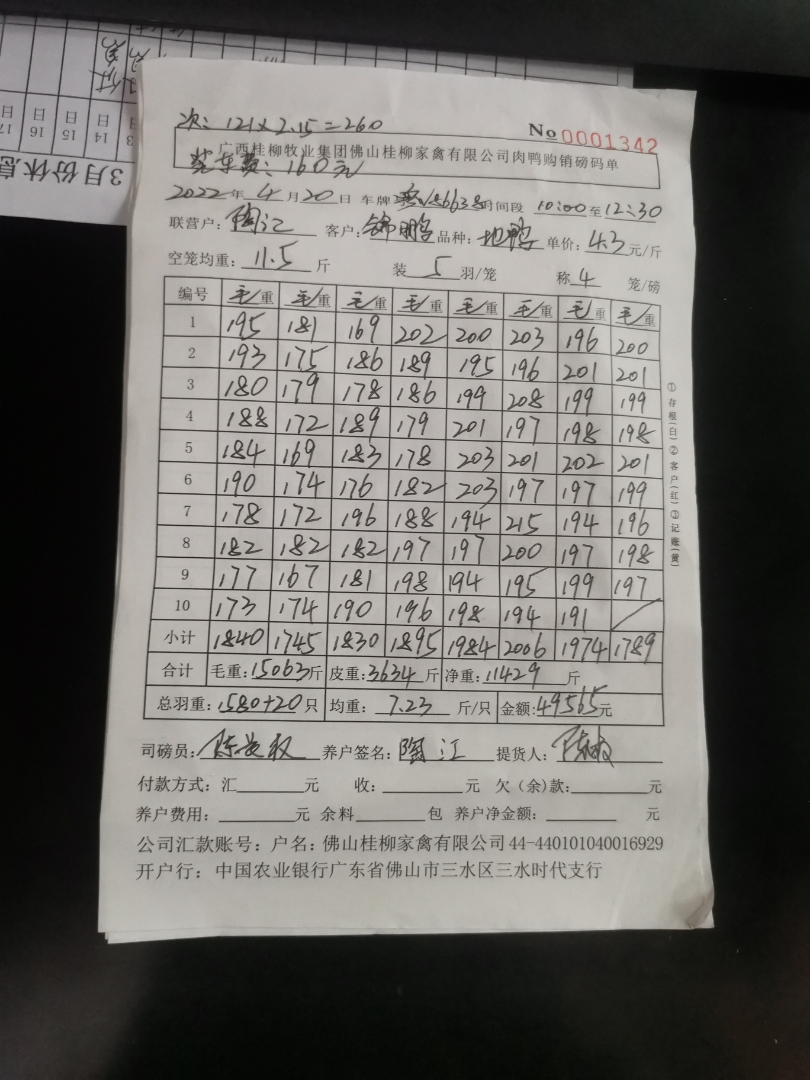 3月份休息
14日
15日
16日
17日
次：121×2.15=260
No 0001342
广西桂柳牧业集团佛山桂柳家禽有限公司肉鸭购销磅码单
装车费：160元
2022年4月20日 车牌 时间段 10:00至12:30
联营户：陶江 客户：锦鹏 品种：地鸭 单价：4.3元/斤
空笼均重：11.5斤 装5羽/笼 称4笼/磅
编号 毛重 毛重 毛重 毛重 毛重 毛重 毛重 毛重
1 195 181 169 202 200 203 196 200
2 193 175 186 189 195 196 201 201
3 180 179 178 186 199 208 199 199
4 188 172 189 179 201 197 198 198
5 184 169 183 178 203 201 202 201
6 190 174 176 182 203 197 197 199
7 178 172 196 188 194 215 194 196
8 182 182 182 197 197 200 197 198
9 177 167 181 198 194 195 199 197
10 173 174 190 196 198 194 191 /
小计 1840 1745 1830 1895 1984 2006 1974 1789
合计 毛重：15063斤 皮重：3634斤 净重：11429斤
总羽重：1580+20只 均重：7.23斤/只 金额：49565元
司磅员： 养户签名：陶江 提货人：
付款方式：汇 元 收： 元 欠（余）款： 元
养户费用： 元 余料 包 养户净金额： 元
公司汇款账号：户名：佛山桂柳家禽有限公司44-440101040016929
开户行：中国农业银行广东省佛山市三水区三水时代支行
①存根(白)②客户(红)③记账(黄)